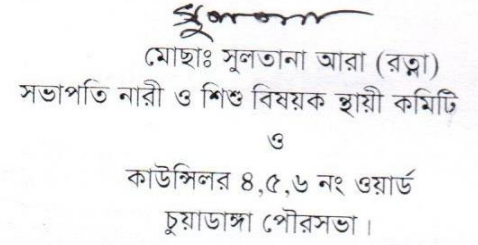 মোছাঃ সুলতানা আরা (রত্না)
সভাপতি নারী ও শিশু বিষয়ক স্থায়ী কমিটি
ও
কাউন্সিলর ৪,৫,৬ নং ওয়ার্ড
চুয়াডাঙ্গা পৌরসভা।